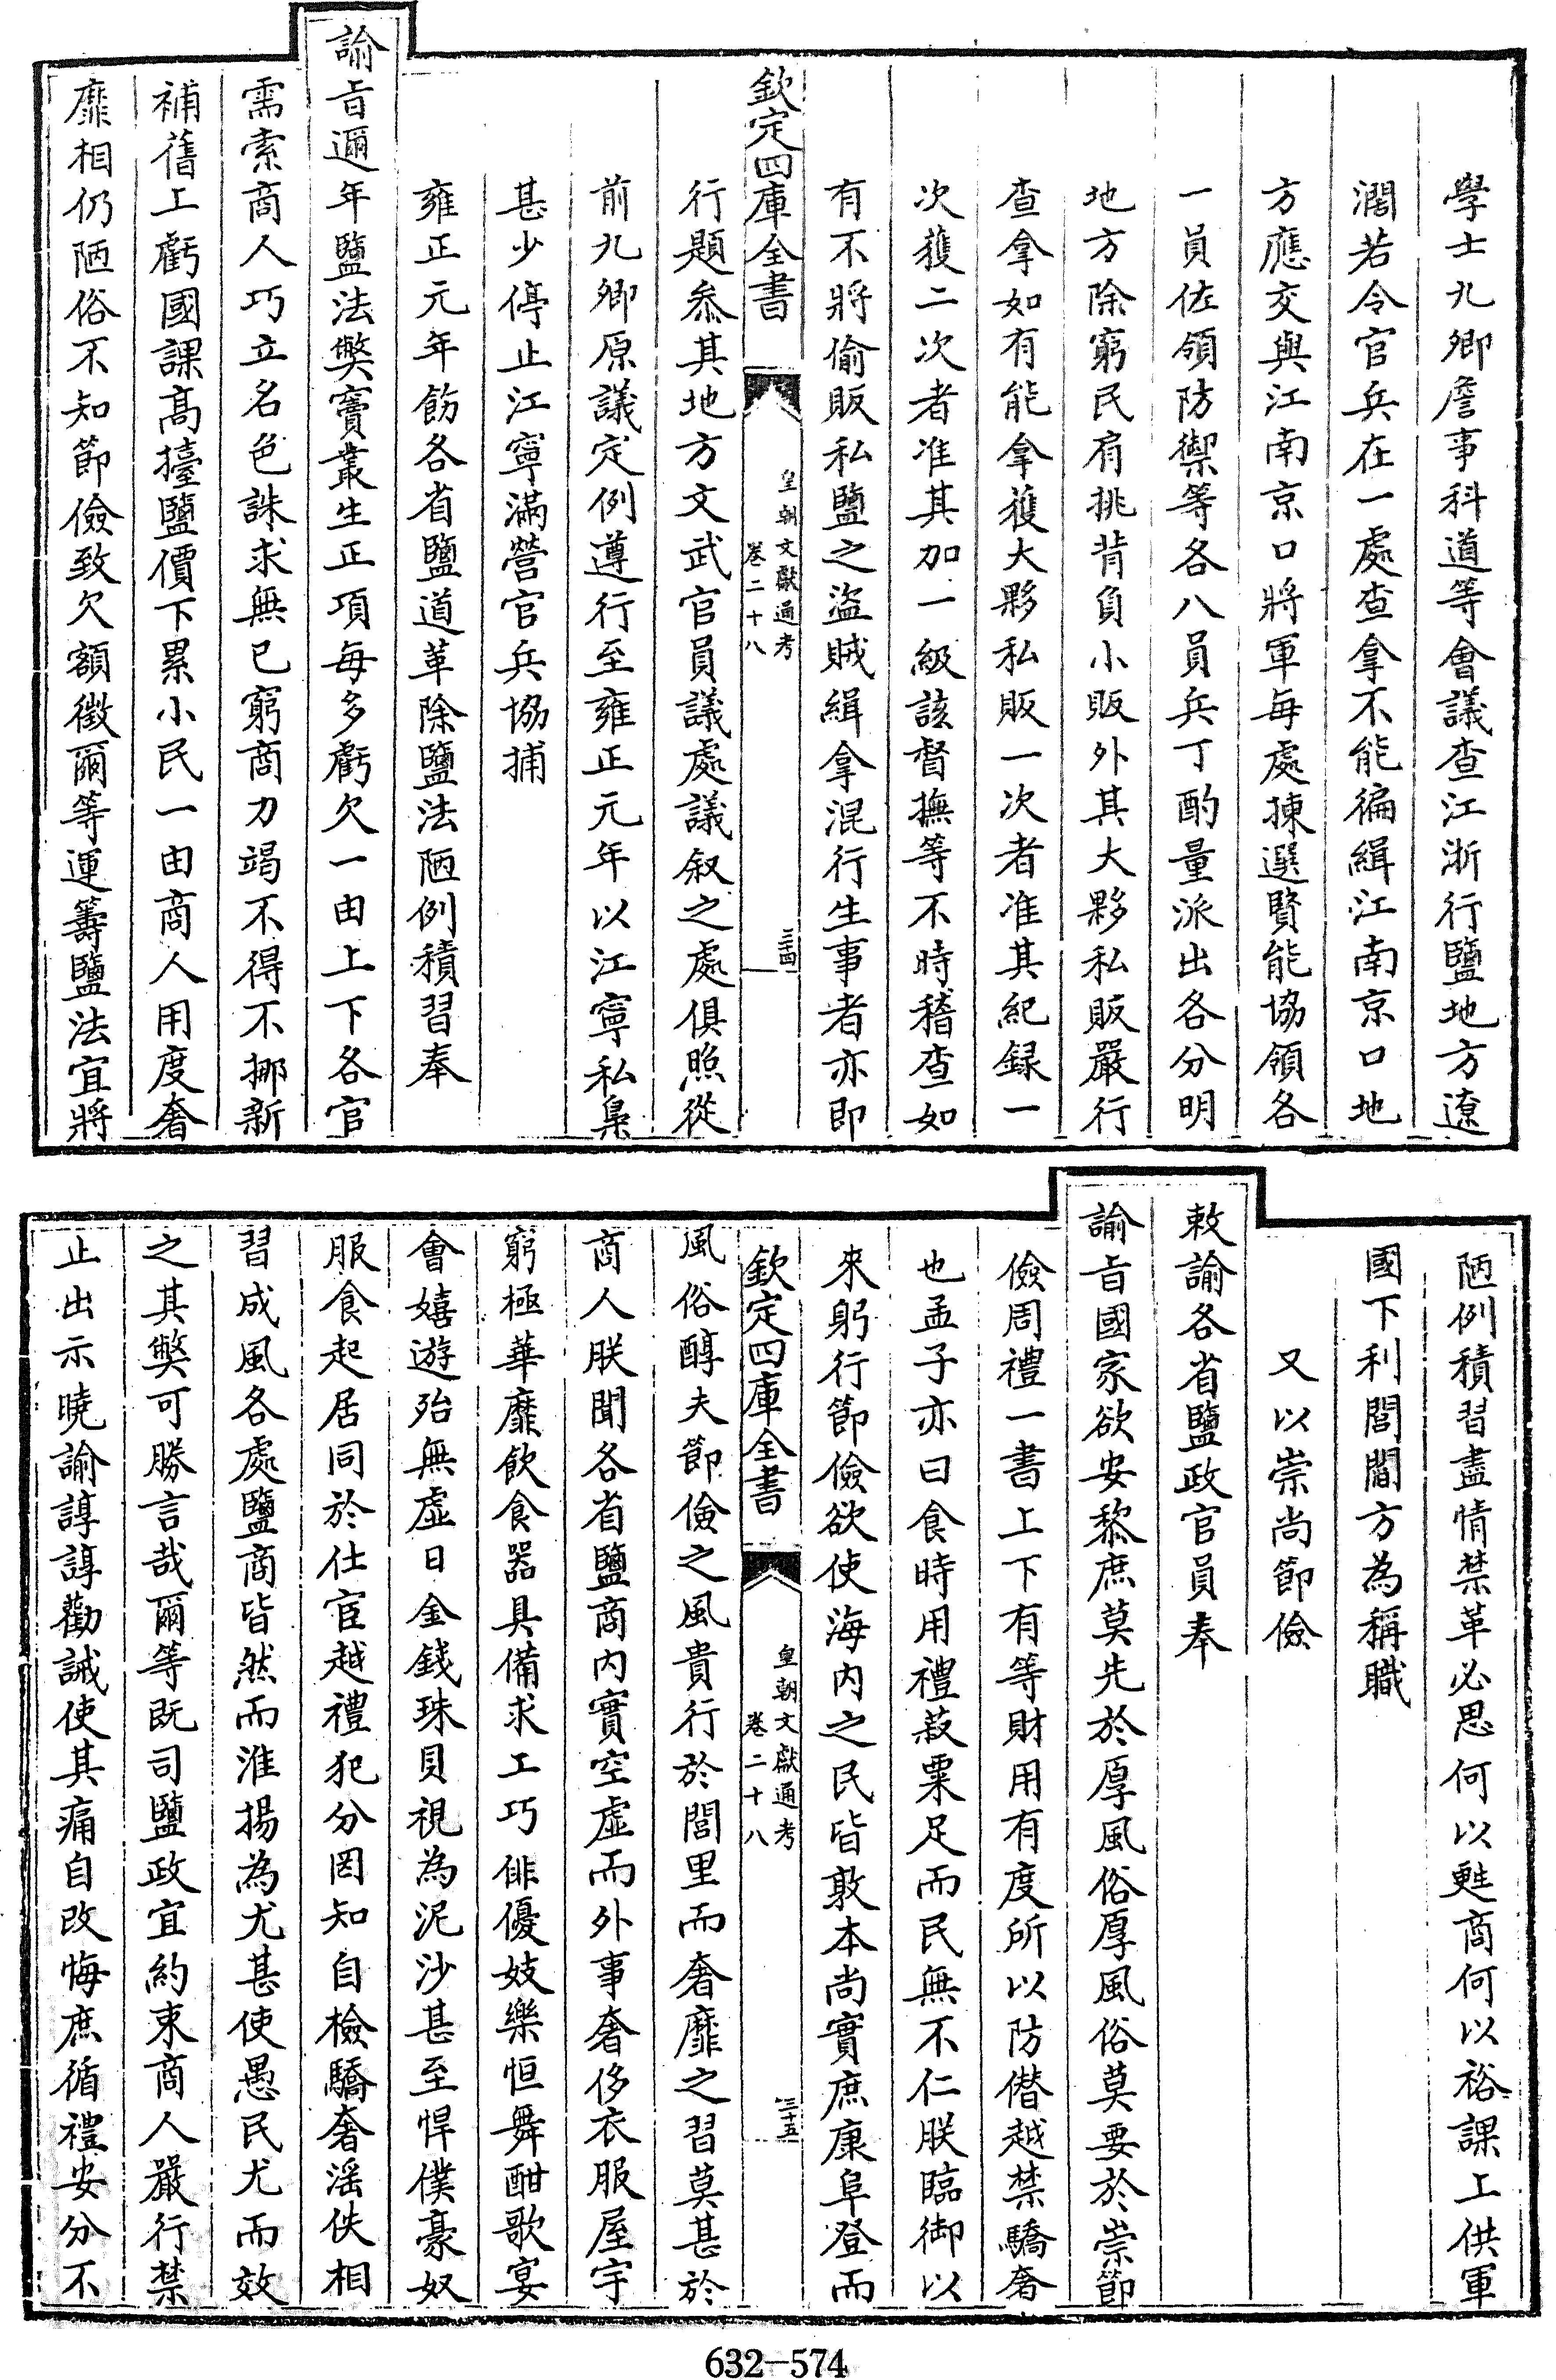 學士九卿詹事科道等會議查江浙行鹽地方遼
濶若令官兵在一處查拿不能徧緝江南京口地
方應交與江南京口將軍每處揀選賢能協領各
一員佐領防禦等各八員兵丁酌量派出各分明
地方除窮民肩挑背負小販外其大夥私販嚴行
查拿如有能拿獲大夥私販一次者准其紀録一
次獲二次者准其加一級該督撫等不時稽查如
有不將偷販私鹽之盜賊緝拿混行生事者亦即
欽定四庫全書
皇朝文獻通考
卷二十八
三十四
行題叅其地方文武官員議處議叙之處俱照從
前九卿原議定例遵行至雍正元年以江寧私梟
甚少停止江寧滿營官兵協捕
雍正元年飭各省鹽道革除鹽法陋例積習奉
諭旨邇年鹽法獘竇叢生正項每多虧欠一由上下各官
需索商人巧立名色誅求無已窮商力竭不得不挪新
補舊上虧國課髙擡鹽價下累小民一由商人用度奢
靡相仍陋俗不知節儉致欠額徵爾等運籌鹽法宜將
陋例積習盡情禁革必思何以甦商何以裕課上供軍
國下利閭閻方為稱職
又以崇尚節儉
敕諭各省鹽政官員奉
諭旨國家欲安黎庶莫先於厚風俗厚風俗莫要於崇節
儉周禮一書上下有等財用有度所以防僭越禁驕奢
也孟子亦曰食時用禮菽粟足而民無不仁朕臨御以
來躬行節儉欲使海内之民皆敦本尚實庶康阜登而
欽定四庫全書
皇朝文獻通考
卷二十八
三十五
風俗醇夫節儉之風貴行於閭里而奢靡之習莫甚於
商人朕聞各省鹽商内實空虛而外事奢侈衣服屋宇
窮極華靡飲食器具備求工巧俳優妓樂恒舞酣歌宴
會嬉遊殆無虛日金錢珠貝視為泥沙甚至悍僕豪奴
服食起居同於仕宦越禮犯分罔知自檢驕奢淫佚相
習成風各處鹽商皆然而淮揚為尤甚使愚民尤而效
之其獘可勝言哉爾等既司鹽政宜約束商人嚴行禁
止出示曉諭諄諄勸誡使其痛自改悔庶循禮安分不
632-574